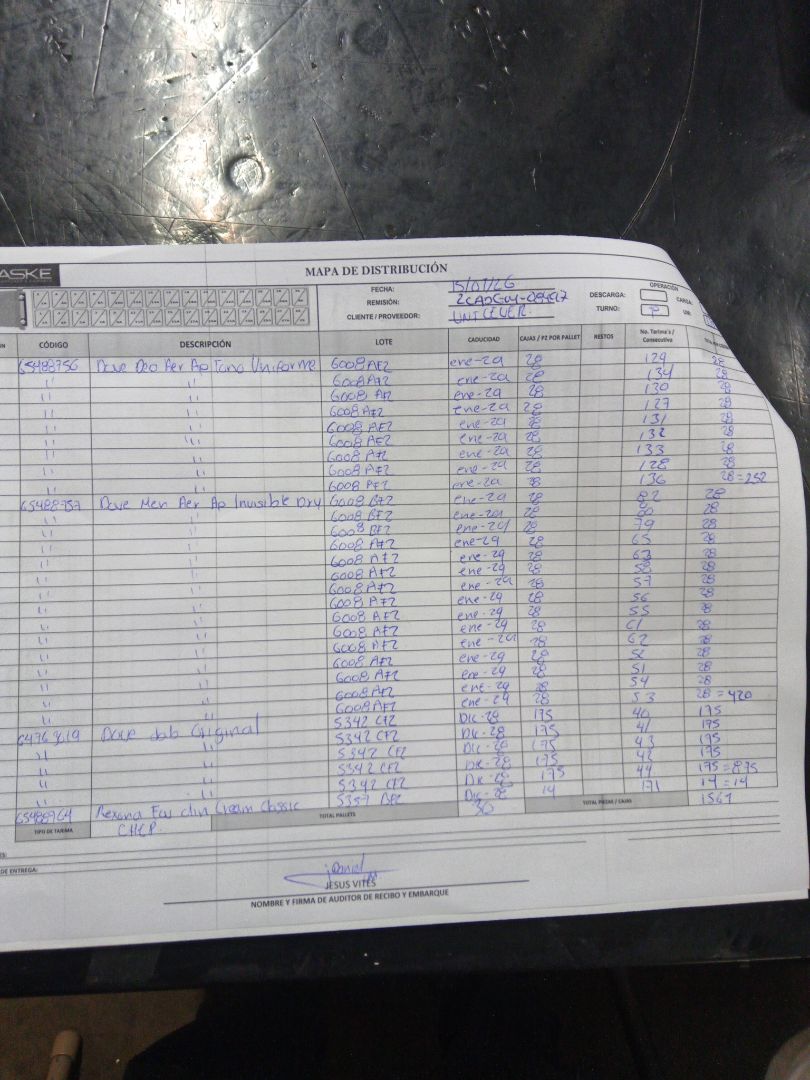 ASKE
MAPA DE DISTRIBUCIÓN
FECHA: 15/07/26
REMISIÓN:
CLIENTE / PROVEEDOR: UNILEVER
OPERACIÓN
DESCARGA: CARGA:
TURNO:
CÓDIGO DESCRIPCIÓN LOTE CADUCIDAD CAJAS / PZ POR PALLET RESTOS No. Tarima's / Consecutivo
65488756 Dove Deo Aer Ap Tono Uniforme 6008 AF2 ene-29 28 129 28
" " 6008 AF2 ene-29 28 134 28
" " 6008 AF2 ene-29 28 130 28
" " 6008 AF2 ene-29 28 127 28
" " 6008 AF2 ene-29 28 131 28
" " 6008 AF2 ene-29 28 132 28
" " 6008 AF2 ene-29 28 133 28
" " 6008 AF2 ene-29 28 128 28
" " 6008 AF2 ene-29 28 136 28=252
65488757 Dove Men Aer Ap Invisible Dry 6008 BF2 ene-29 28 82 28
" " 6008 BF2 ene-29 28 80 28
" " 6008 BF2 ene-29 28 79 28
" " 6008 AF2 ene-29 28 65 28
" " 6008 AF2 ene-29 28 63 28
" " 6008 AF2 ene-29 28 58 28
" " 6008 AF2 ene-29 28 57 28
" " 6008 AF2 ene-29 28 56 28
" " 6008 AF2 ene-29 28 55 28
" " 6008 AF2 ene-29 28 61 28
" " 6008 AF2 ene-29 28 62 28
" " 6008 AF2 ene-29 28 28
" " 6008 AF2 ene-29 28 51 28
" " 6008 AF2 ene-29 28 54 28
" " 6008 AF2 ene-29 28 53 28=420
Dove Jab Original 5342 CF2 Dic-28 175 40 175
" " 5342 CF2 Dic-28 175 41 175
" " 5342 CF2 Dic-28 175 43 175
" " 5342 CF2 Dic-28 175 42 175
" " 5342 CF2 Dic-28 175 44 175=875
65488964 Rexona Clin Cream Classic Dic-28 14 171 14=14
TIPO DE TARIMA CHEP TOTAL PALLETS 30 TOTAL PIEZAS / CAJAS 1561
DE ENTREGA:
JESUS VITES
NOMBRE Y FIRMA DE AUDITOR DE RECIBO Y EMBARQUE